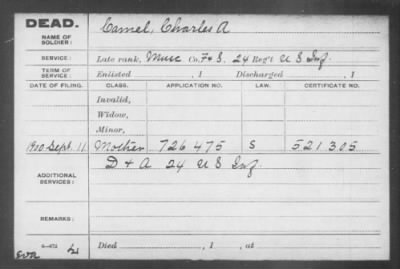 DEAD.
Camel, Charles A
NAME OF
SOLDIER:
SERVICE:
Late rank, Musc Co. F & S, 24 Reg't U S Inf.
TERM OF
SERVICE:
Enlisted , 1 Discharged , 1
DATE OF FILING. CLASS. APPLICATION NO. LAW. CERTIFICATE NO.
Invalid,
Widow,
Minor,
1900 Sept. 11 Mother 726 475 S 521 305
D & A 24 U S Inf
ADDITIONAL
SERVICES:
REMARKS:
Died , 1 , at